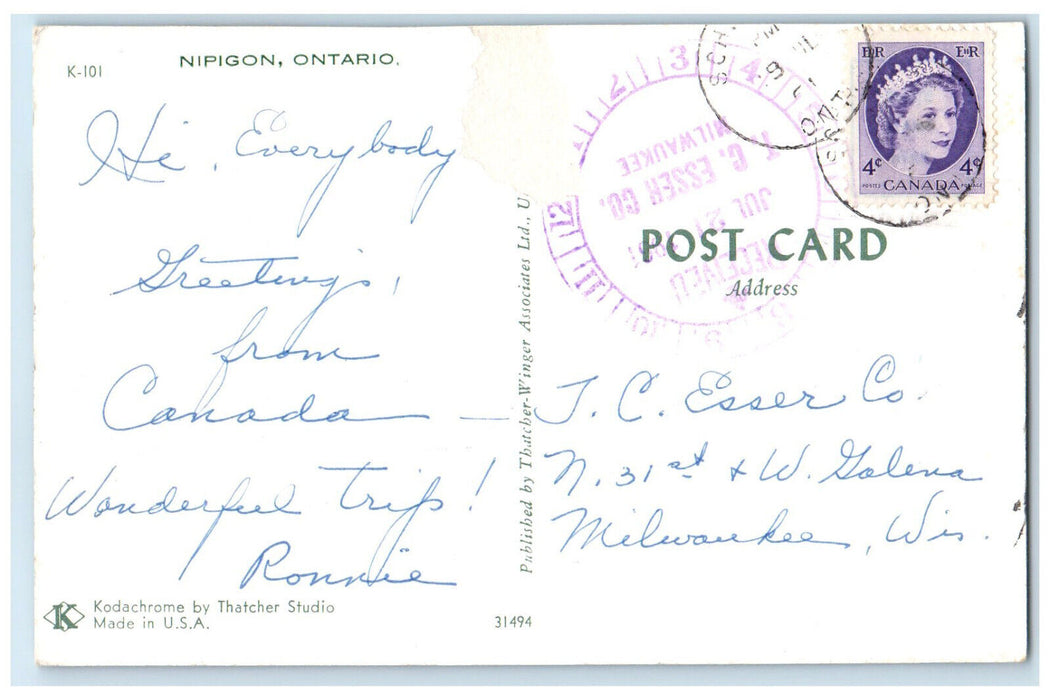 K-101
NIPIGON, ONTARIO.
Hi, Everybody
Greetings,
from
Canada —
Wonderful trip!
Ronnie
Kodachrome by Thatcher Studio
Made in U.S.A.
31494
Published by Thatcher-Winger Associates Ltd.,
2 3 4
T. C. ESSER CO.
MILWAUKEE
JUL 21
RECEIVED
12
9
PM
ONT.
E II R E II R
4¢ 4¢
POSTES CANADA POSTAGE
POST CARD
Address
T. C. Esser Co.
N. 31st & W. Galena
Milwaukee, Wis.